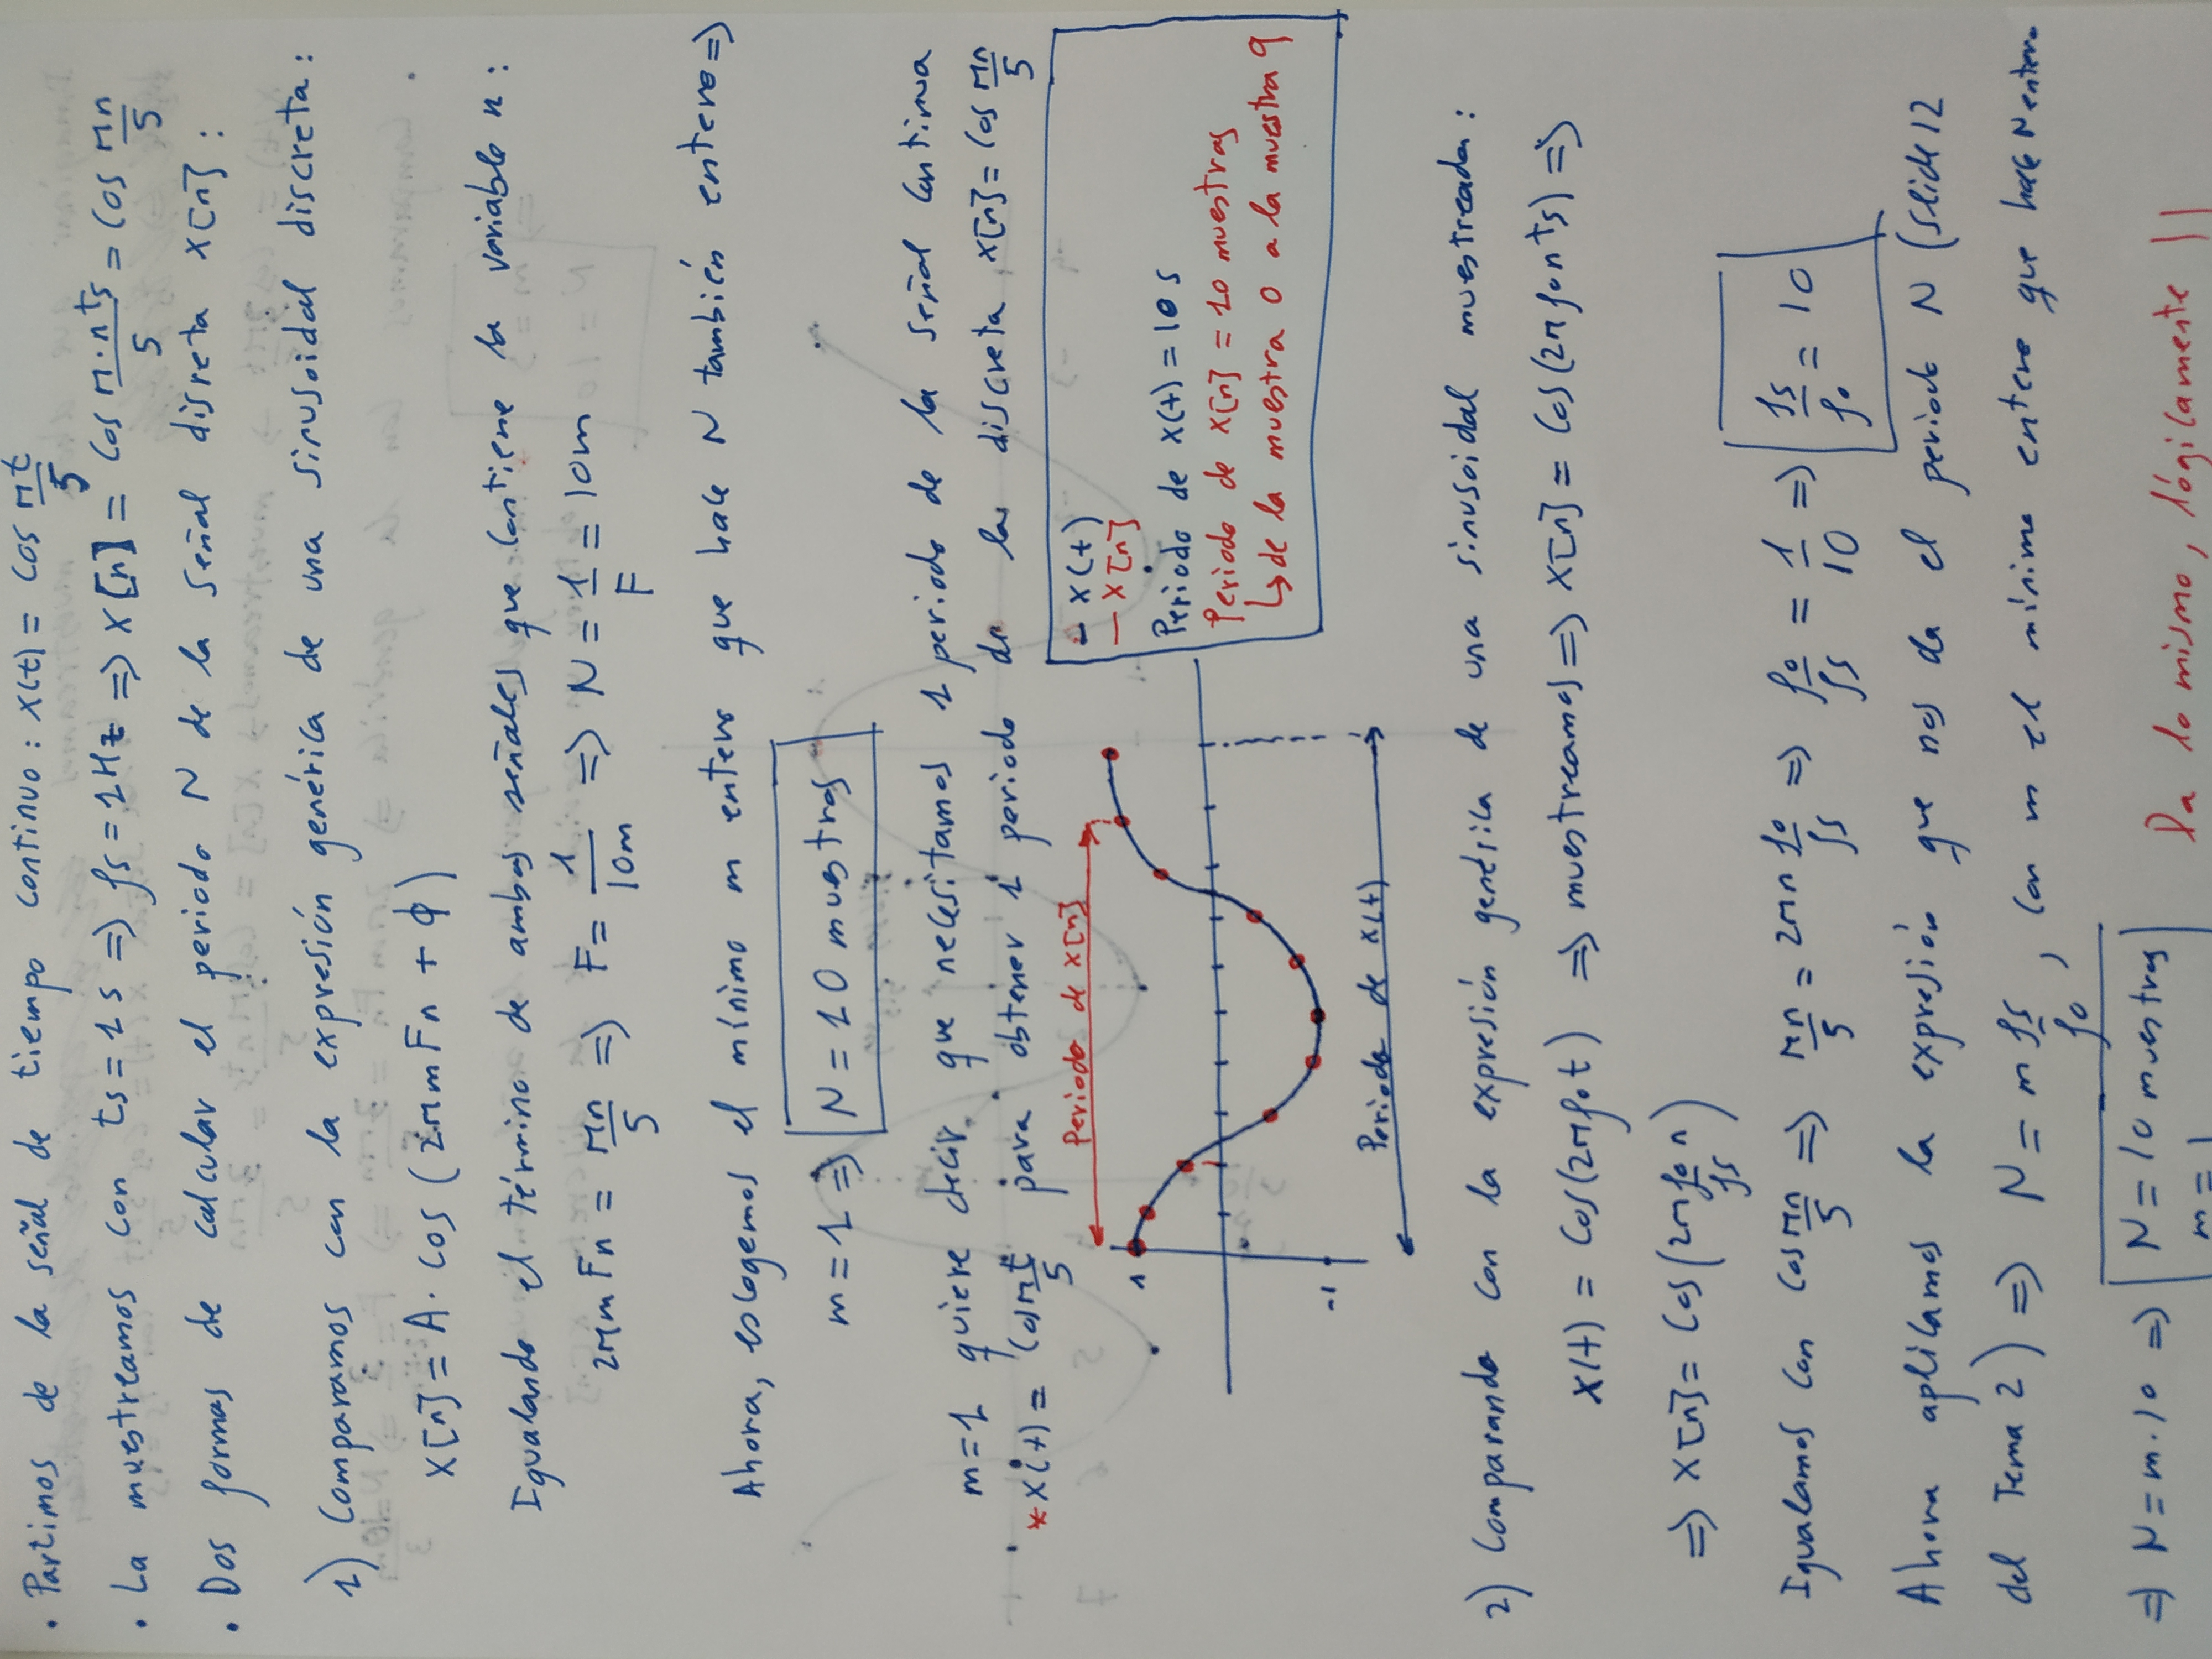 · Partimos de la señal de tiempo continuo: x(t) = cos πt/5
· La muestreamos con ts = 1 s => fs = 1 Hz => x[n] = cos π·n ts/5 = cos πn/5
· Dos formas de calcular el periodo N de la señal disreta x[n]:
1) Comparamos con la expresión genérica de una sinusoidal discreta:
x[n] = A· cos (2πm Fn + ϕ)
Igualando el término de ambas señales que contiene la variable n:
2πm Fn = πn/5 => F = 1/10m => N = 1/F = 10m
Ahora, escogemos el mínimo m entero que hace N también entero =>
m = 1 => N = 10 muestras
m = 1 quiere decir que necesitamos 1 periodo de la señal continua
* x(t) = cos πt/5 para obtener 1 periodo de la discreta x[n] = cos πn/5
Periodo de x[n]
1
-1
Periodo de x(t)
– x(t)
– x[n]
Periodo de x(t) = 10 s
Periodo de x[n] = 10 muestras
↳ de la muestra 0 a la muestra 9
2) Comparando con la expresión genérica de una sinusoidal muestreada:
x(t) = cos(2πfot) => muestreamos => x[n] = cos(2πfonts) =>
=> x[n] = cos(2π fo/fs n)
Igualamos con cos πn/5 => πn/5 = 2πn fo/fs => fo/fs = 1/10 => fs/fo = 10
Ahora aplicamos la expresión que nos da el periodo N (slide 12
del Tema 2) => N = m fs/fo, con m el mínimo entero que hace N entero
=> N = m·10 => N = 10 muestras
m = 1
Da lo mismo, lógicamente !!